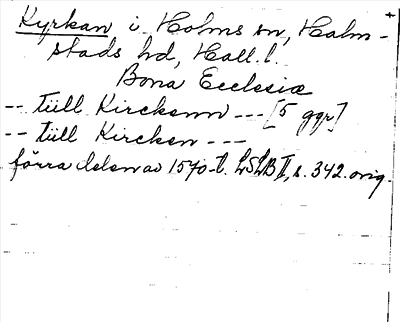 Kyrkan i Holms sn, Halm-
stads hd, Hall. l.
Bona Ecclesiæ
-- tiill Kirckenn --- [5 ggr]
-- tiill Kircken ---
förra delen av 1570-t. LSLB II, s. 342. orig.